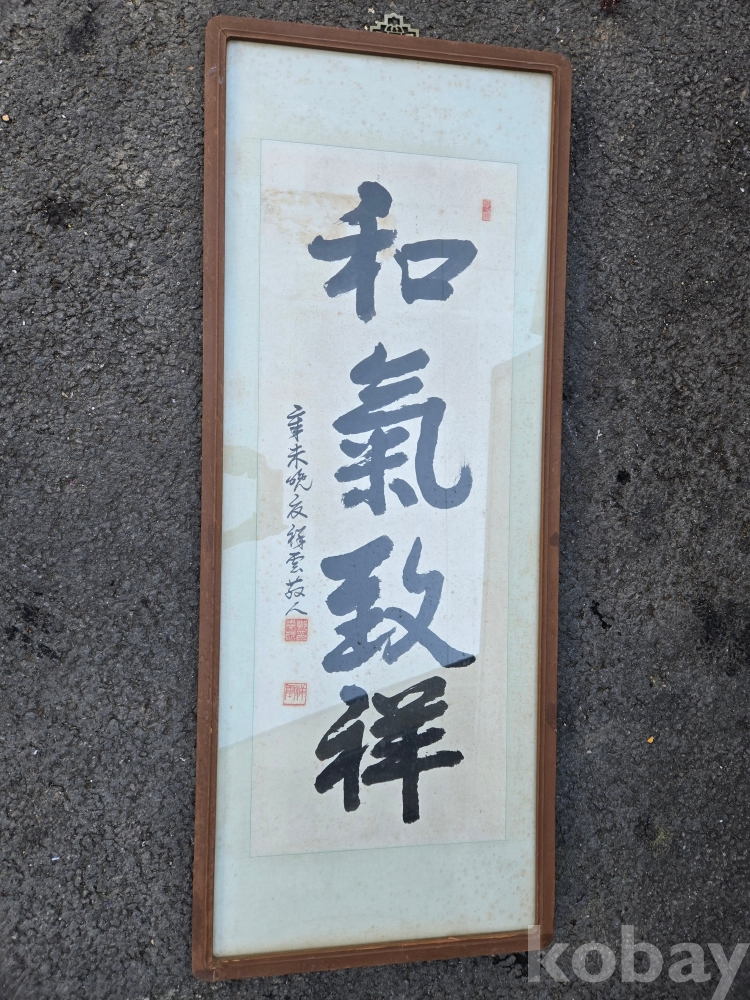 和氣致祥
辛未晚夏祥雲散人
kobay